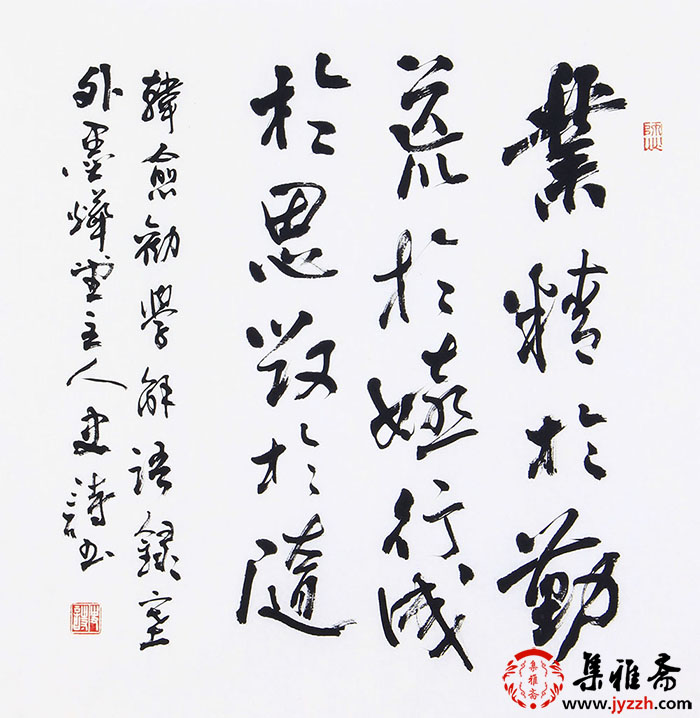 業精於勤
荒於嬉行成
於思毀於隨
韓愈勸學解語錄塞
外墨燁堂主人史詩书
集雅斋
集雅斋
www.jyzzh.com